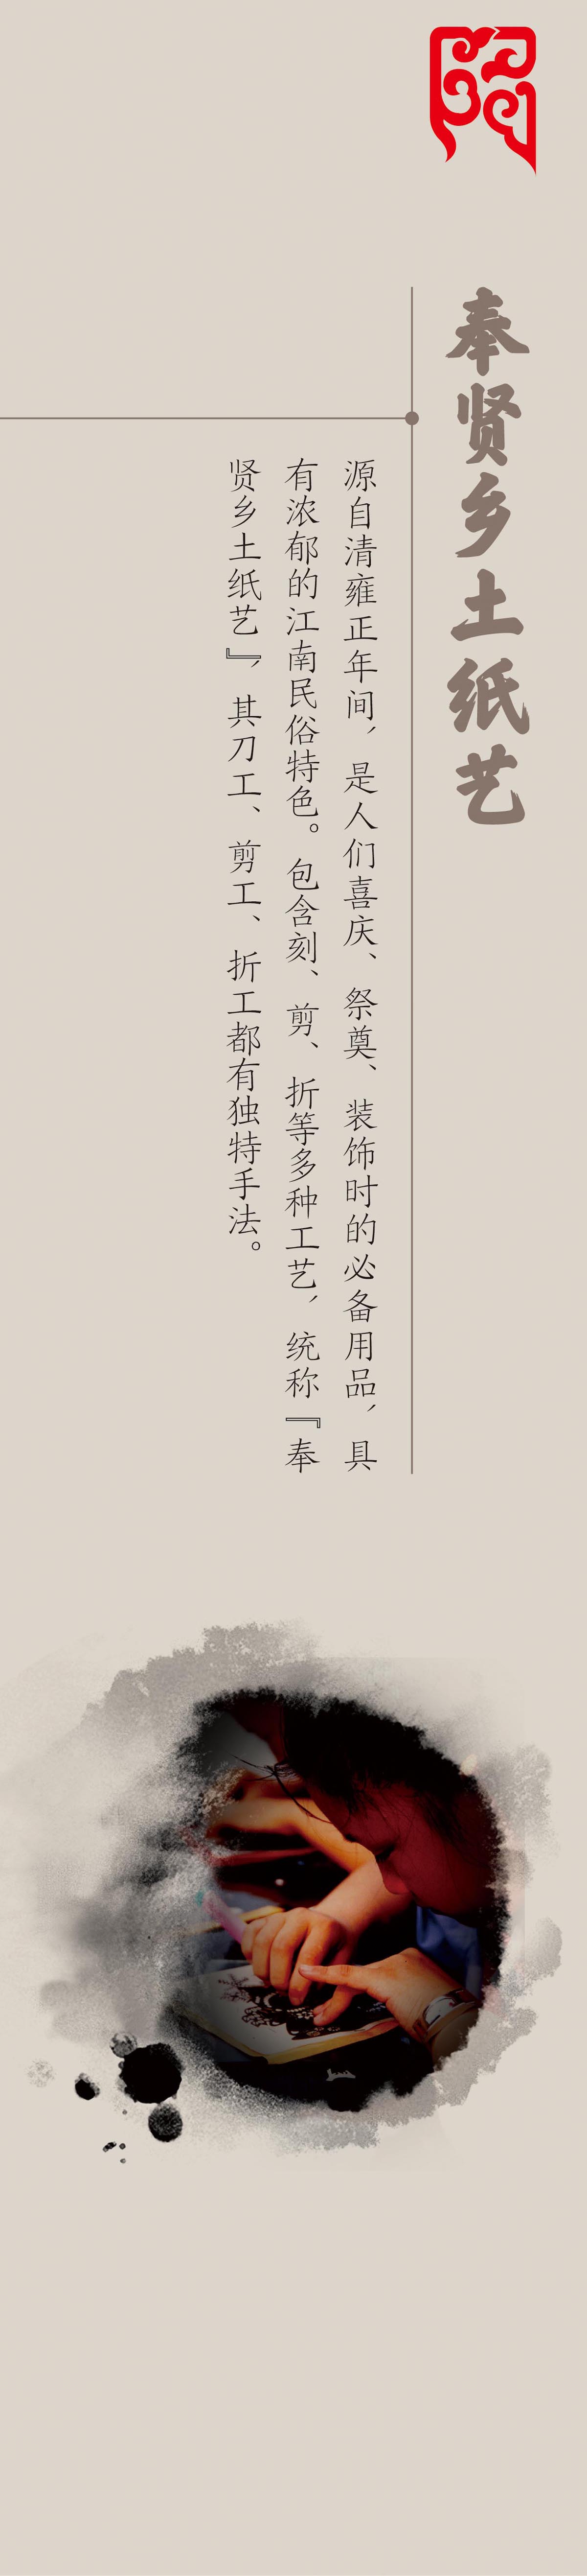 奉贤乡土纸艺
源自清雍正年间，是人们喜庆、祭奠、装饰时的必备用品，具
有浓郁的江南民俗特色。包含刻、剪、折等多种工艺，统称『奉
贤乡土纸艺』，其刀工、剪工、折工都有独特手法。